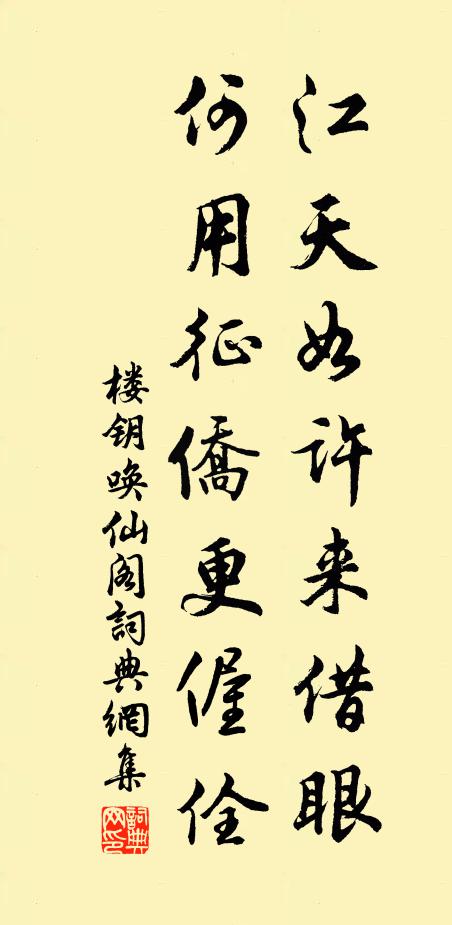 江天如许来借眼
何用征僑更偓佺
楼钥唤仙阁詞典網集
詞典网印